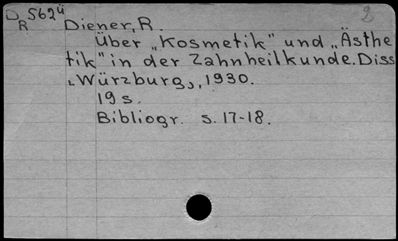 D 562ü 2
R Diener, R.
Über „Kosmetik" und „Ästhe
tik" in der Zahnheilkunde. Diss
„Würzburg", 1930.
19 s.
Bibliogr. s. 17-18.